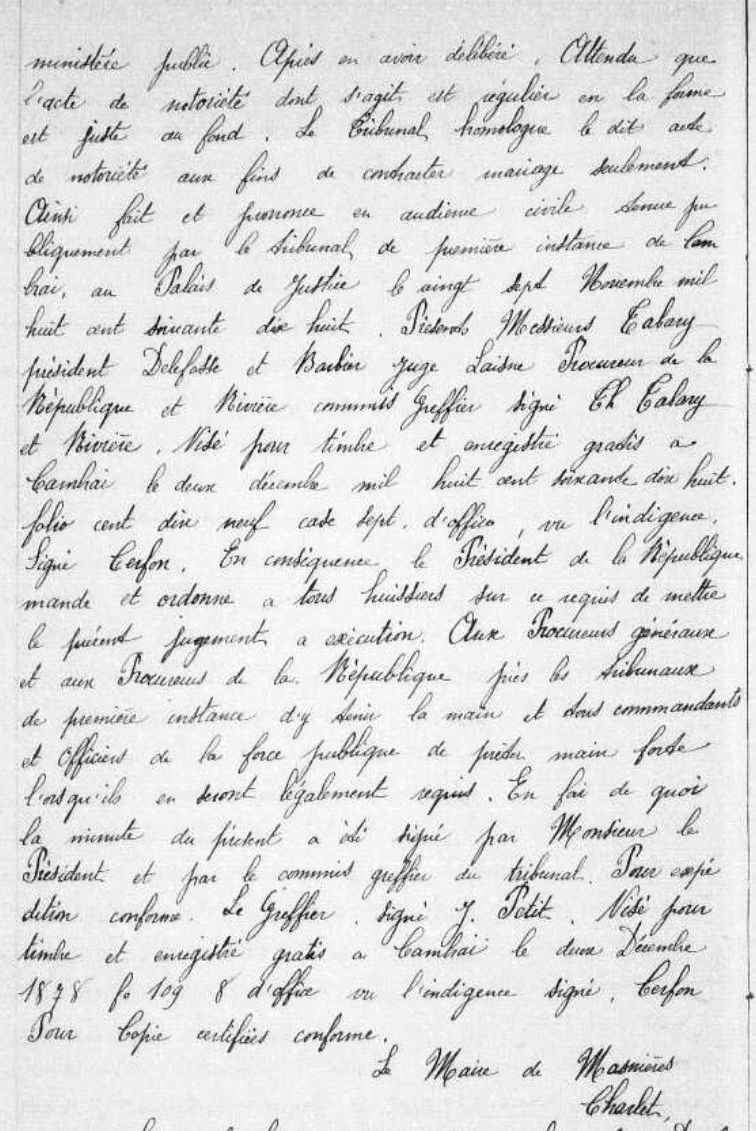 ministère public. Après en avoir délibéré, Attendu que
l'acte de notoriété dont s'agit est régulier en la forme
est juste au fond. Le Tribunal homologue le dit acte
de notoriété aux fins de contracter mariage seulement.
Ainsi fait et prononcé en audience civile tenue pu
bliquement par le tribunal de première instance de Cam
brai, au Palais de Justice le vingt sept Novembre mil
huit cent soixante dix huit. Présents Messieurs Tabary
président Delefosse et Barbier Juge Laisne Procureur de la
République et Rivière commis Greffier signé Th Talary
et Rivière. Visé pour timbre et enregistré gratis a
Cambrai le deux décembre mil huit cent soixante dix huit.
folio cent dix neuf case sept. d'office, vu l'indigence.
Signé Cerfon. En conséquence le Président de la République
mande et ordonne a tous huissiers sur ce requis de mettre
le présent jugement a exécution. Aux Procureurs généraux
et aux Procureurs de la République près les tribunaux
de première instance d'y tenir la main et tous commandants
et Officiers de la force publique de prêter main forte
l'orsqu'ils en seront légalement requis. En foi de quoi
la minute du présent a été signé par Monsieur le
Président et par le commis greffier du tribunal. Pour expé
dition conforme. Le Greffier. signé J. Petit. Visé pour
timbre et enregistré gratis a Cambrai le deux Décembre
1878 fo 109 8 d'office vu l'indigence signé, Cerfon
Pour Copie certifiées conforme.
Le Maire de Masnières
Charlet,